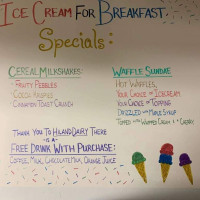 Ice Cream For Breakfast
Specials:
Cereal Milkshakes:
- Fruity Pebbles
- Cocoa Krispies
- Cinnamon Toast Crunch
Waffle Sundae
Hot Waffles,
Your Choice of Icecream,
Your Choice of Topping
Drizzled with Maple Syrup
Topped with Whipped Cream & a Cherry
Thank You To Hiland Dairy There
is a
Free Drink With Purchase:
Coffee, Milk, Chocolate Milk, Orange Juice